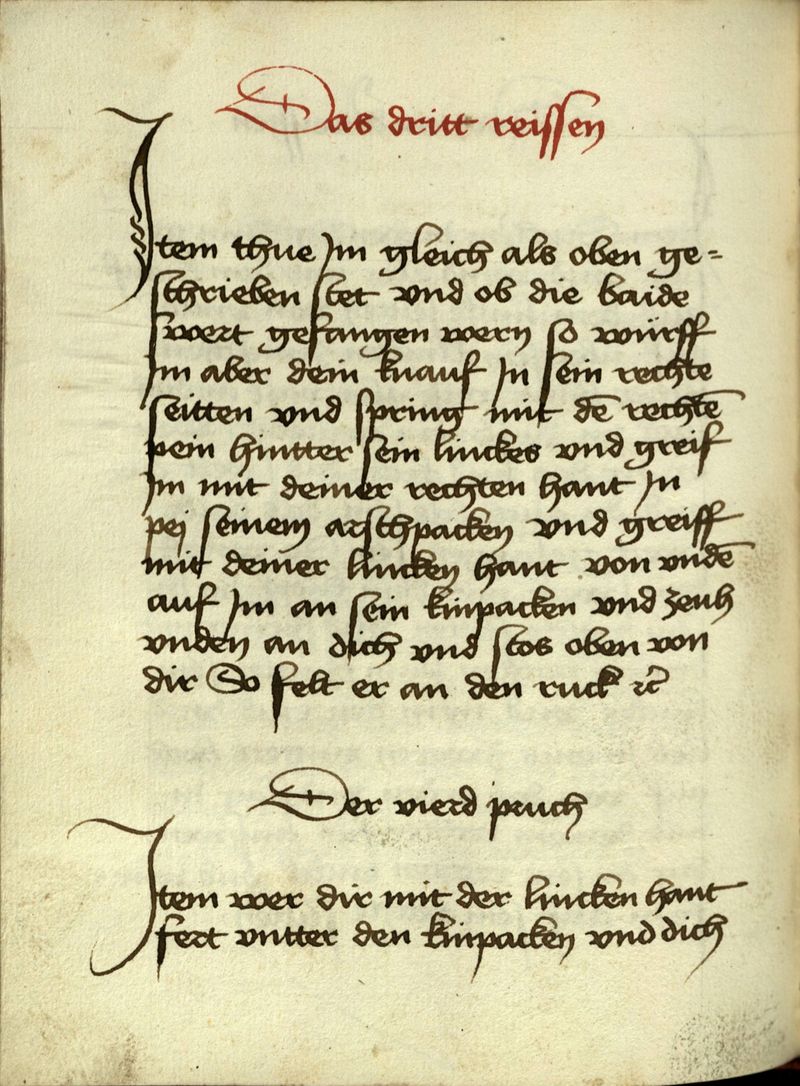 Das dritt reissen
Item thue Im gleich als oben ge=
schrieben stet vnd ob die baide
swert gefangen wern so würff
Im aber dein knauf In sein rechte
seitten vnd spring mit dē rechtē
pein hintter sein linckes vnd greif
Im mit deiner rechten hant In
pej seinem arschpacken vnd greiff
mit deiner lincken hant von vndē
auf Im an sein kinpacken vnd zeuh
vnden an dich vnd stos oben von
dir So felt er an den ruck ꝛc̄
Der vierd pruch
Item wer dir mit der lincken hant
fert vntter den kinpacken vnd dich